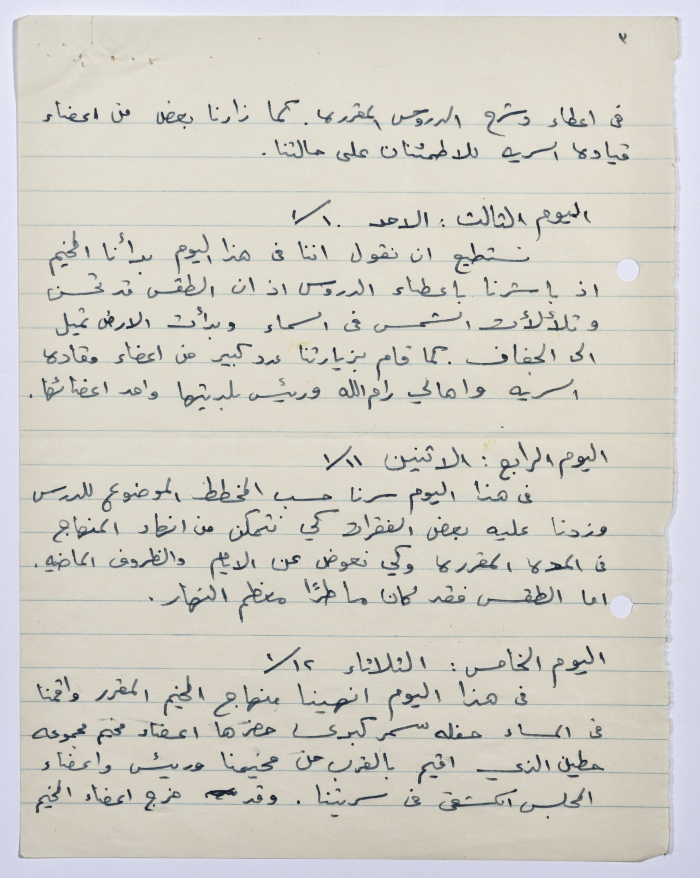 ٣
فى اعطاء وشرح الدروس المقرره. كما زارنا بعض من اعضاء
قياده السريه للاطمئنان على حالتنا.
اليوم الثالث : الاحد ١/١٠
نستطيع ان نقول اننا فى هذا اليوم بدأنا المخيم
اذ باشرنا باعطاء الدروس اذ ان الطقس قد تحسن
وتلألأت الشمس فى السماء وبدأت الارض تميل
الى الجفاف. كما قام بزيارتنا عدد كبير من اعضاء وقاده
السريه واهالي رام الله ورئيس بلديتها واحد اعضائها.
اليوم الرابع : الاثنين ١/١١
فى هذا اليوم سرنا حسب المخطط الموضوع للدرس
وزدنا عليه بعض الفقرات كي نتمكن من انهاء المنهاج
فى المده المقرره وكي نعوض عن الايام والظروف الماضيه.
اما الطقس فقد كان ماطرًا معظم النهار.
اليوم الخامس : الثلاثاء ١/١٢
فى هذا اليوم انهينا منهاج المخيم المقرر واقمنا
فى المساء حفله سمر كبرى حضرها اعضاء مخيم مجموعه
حطين الذي اقيم بالقرب من مخيمنا ورئيس واعضاء
المجلس الكشفى فى سريتنا. وقد خرج اعضاء المخيم